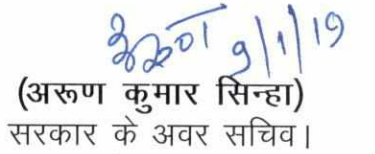 अरूण 9/1/19
(अरूण कुमार सिन्हा)
सरकार के अवर सचिव।